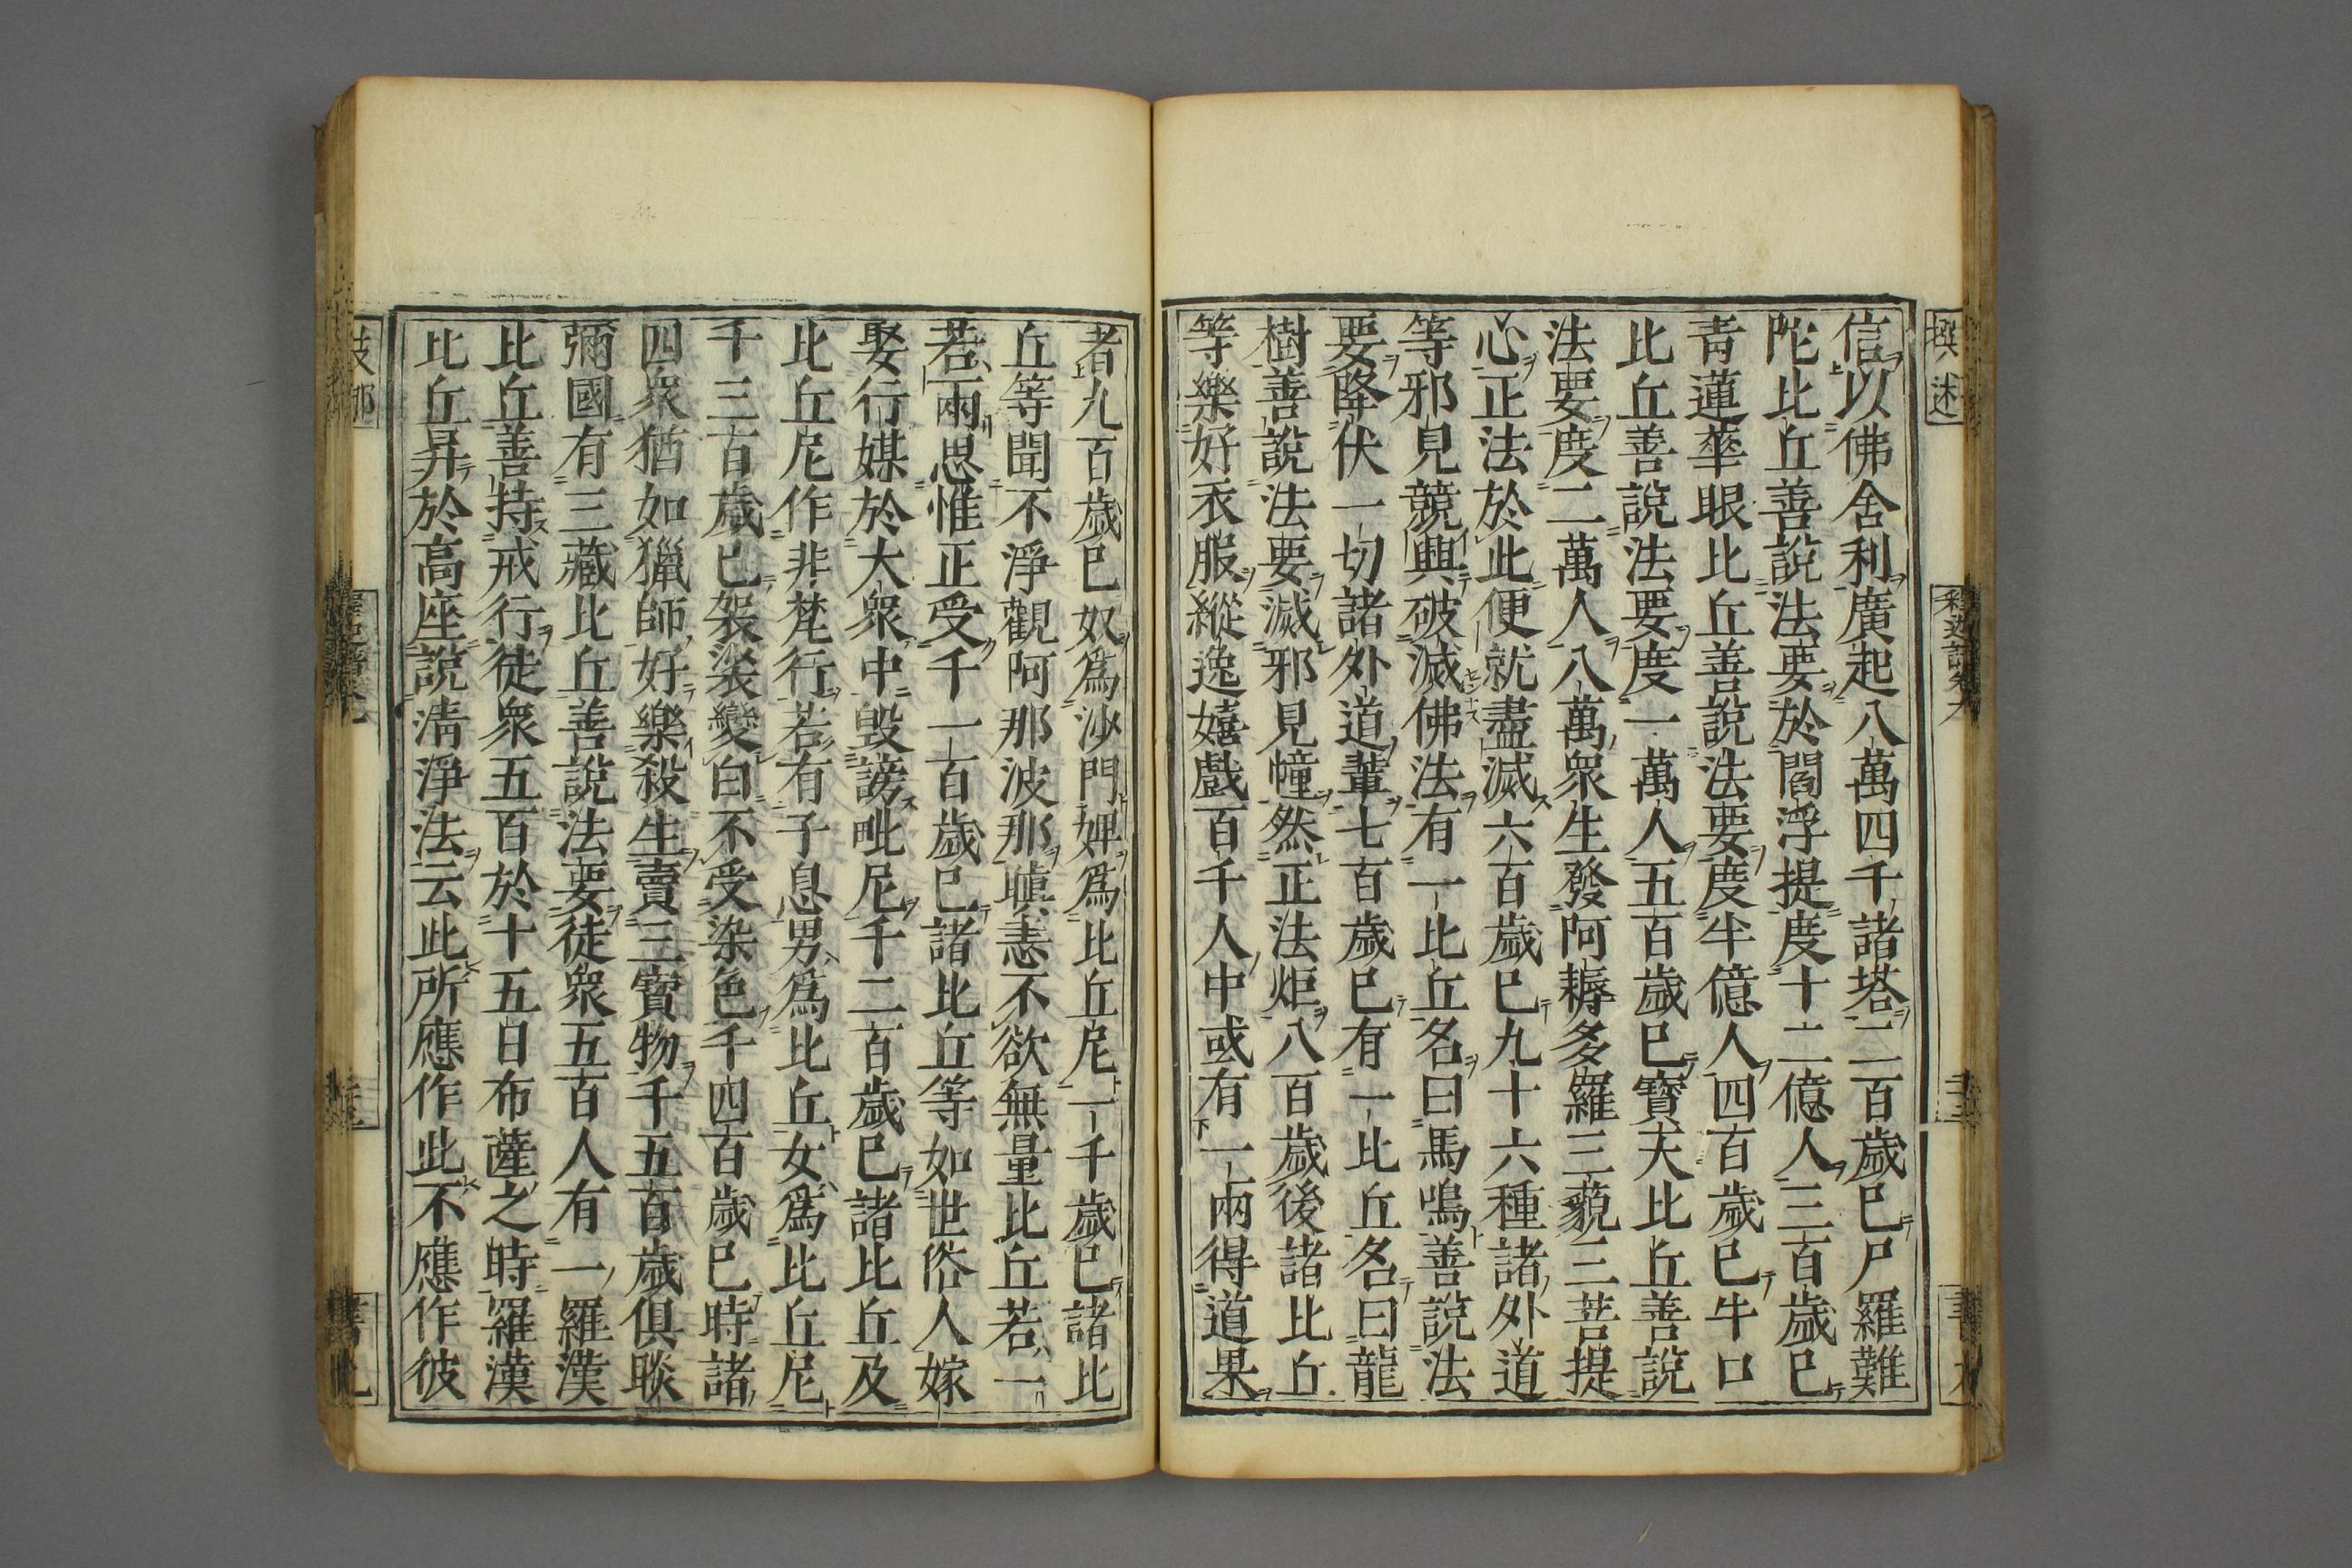 撰述
信以佛舍利廣起八萬四千諸塔二百歲巳尸羅難
陀比丘善說法要於閻浮提度十二億人三百歲巳
青蓮華眼比丘善說法要度半億人四百歲巳牛口
比丘善說法要度一萬人五百歲巳寶天比丘善說
法要度二萬人八萬衆生發阿耨多羅三藐三菩提
心正法於此便就盡滅六百歲巳九十六種諸外道
等邪見競興破滅佛法有一比丘名曰馬鳴善說法
要降伏一切諸外道輩七百歲巳有一比丘名曰龍
樹善說法要滅邪見幢然正法炬八百歲後諸比丘
等樂好衣服縱逸嬉戲百千人中或有一兩得道果
者九百歲巳奴爲沙門婢爲比丘尼一千歲巳諸比
丘等聞不淨觀阿那波那瞋恚不欲無量比丘若一
若兩思惟正受千一百歲巳諸比丘等如世俗人嫁
娶行媒於大衆中毀謗毗尼千二百歲巳諸比丘及
比丘尼作非梵行若有子息男爲比丘女爲比丘尼
千三百歲巳袈裟變白不受染色千四百歲巳時諸
四衆猶如獵師好樂殺生賣三寶物千五百歲俱睒
彌國有三藏比丘善說法要徒衆五百人有一羅漢
比丘善持戒行徒衆五百於十五日布薩之時羅漢
比丘昇於高座說淸淨法云此所應作此不應作彼